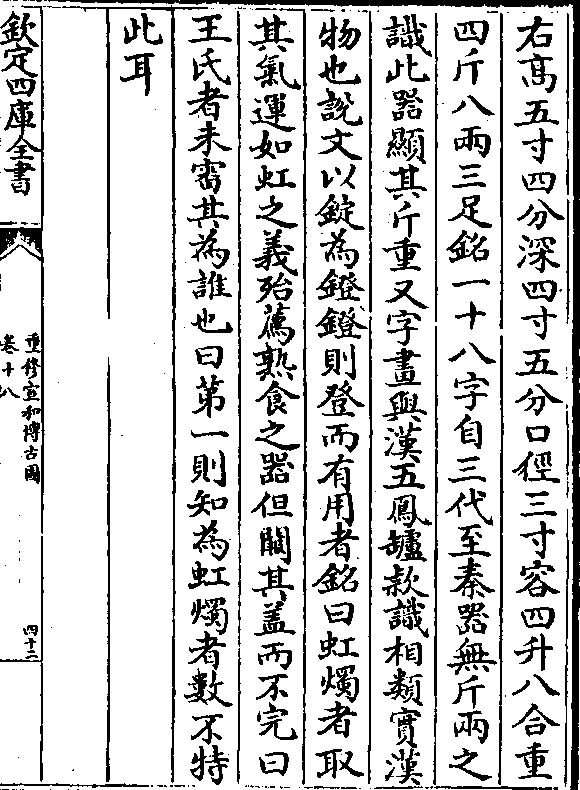 右髙五寸四分深四寸五分口徑三寸容四升八合重
四斤八兩三足銘一十八字自三代至秦器無斤兩之
識此器顯其斤重又字畫與漢五鳳鑪款識相類實漢
物也說文以錠為鐙鐙則登而有用者銘曰虹燭者取
其氣運如虹之義殆薦熟食之器但闕其盖而不完曰
王氏者未審其為誰也曰第一則知為虹燭者數不特
此耳
欽定四庫全書
重修宣和博古圖
卷十八
四十二